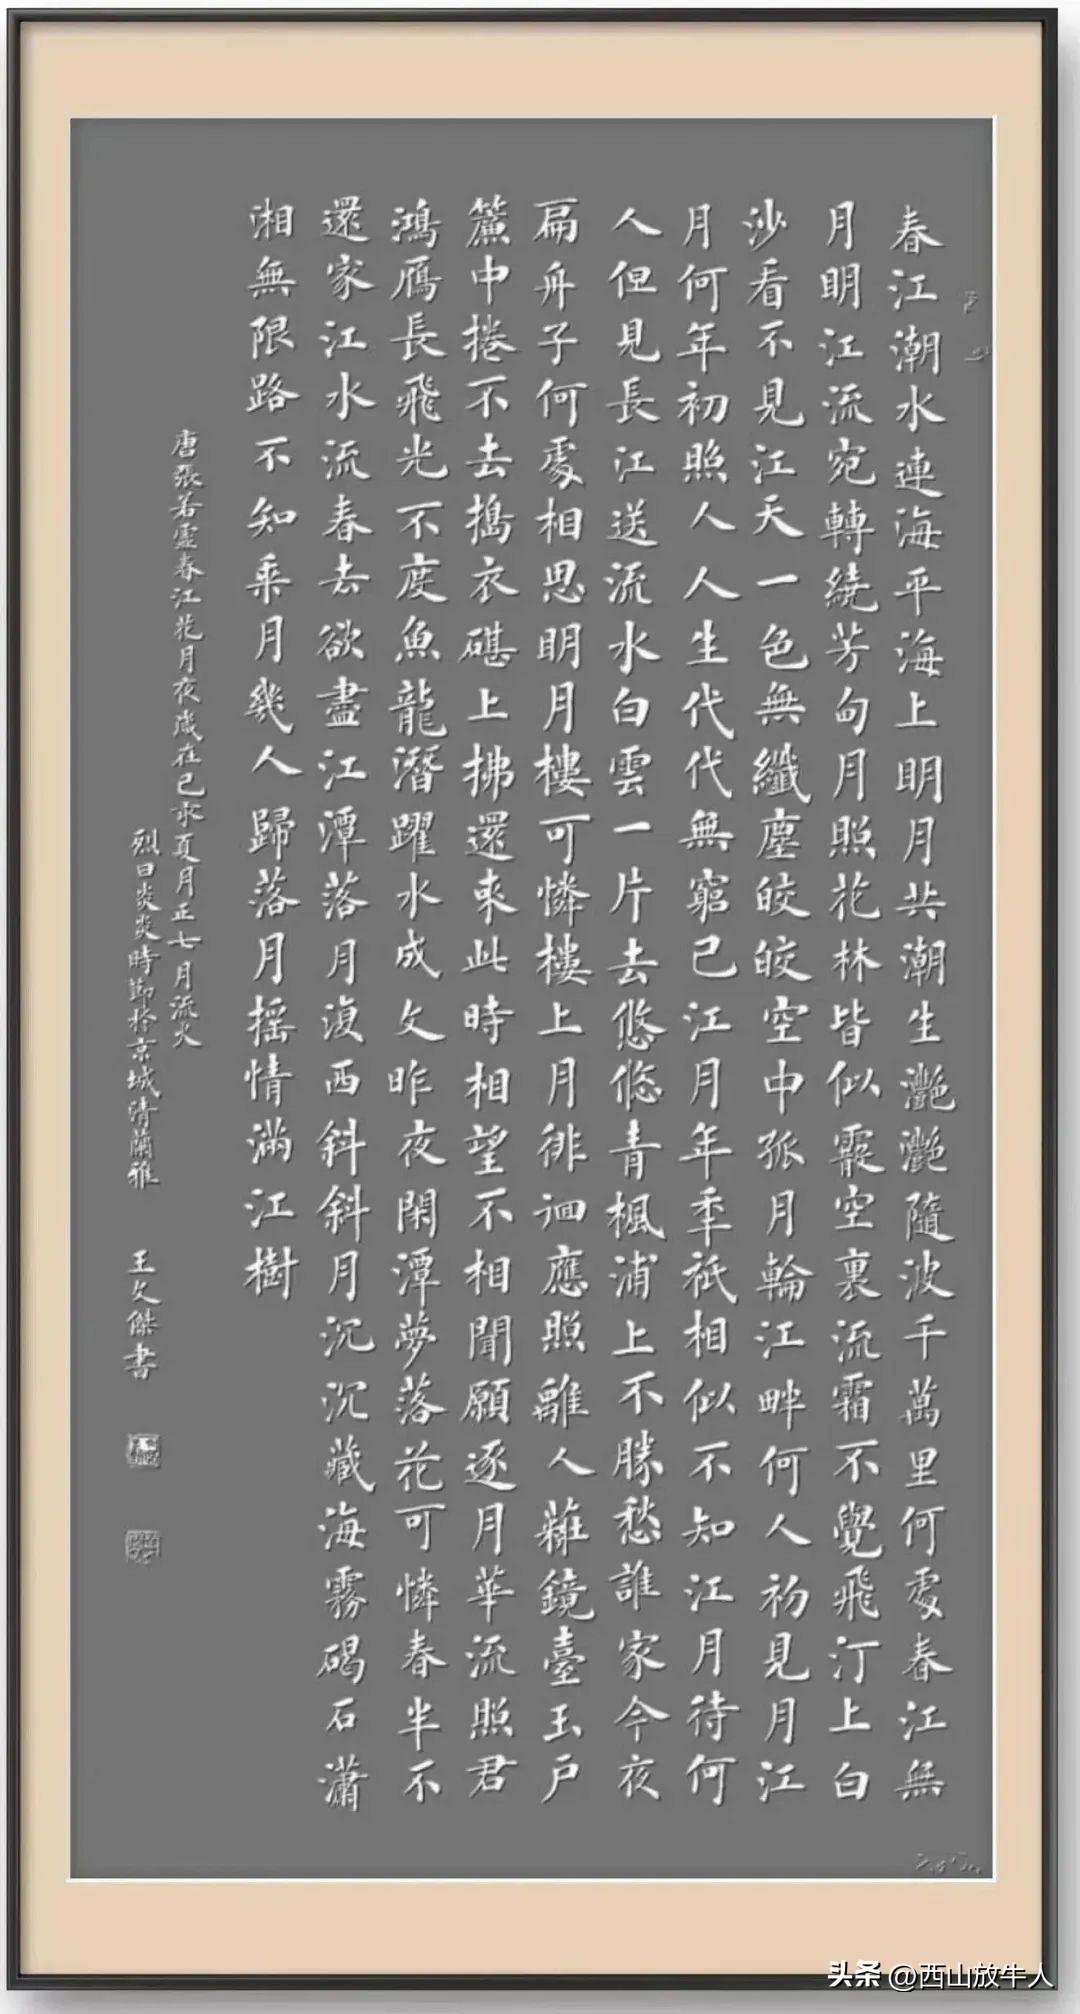 春江潮水連海平海上明月共潮生灔灔隨波千萬里何處春江無
月明江流宛轉繞芳甸月照花林皆似霰空裏流霜不覺飛汀上白
沙看不見江天一色無纖塵皎皎空中孤月輪江畔何人初見月江
月何年初照人人生代代無窮已江月年年祇相似不知江月待何
人但見長江送流水白雲一片去悠悠青楓浦上不勝愁誰家今夜
扁舟子何處相思明月樓可憐樓上月徘徊應照離人粧鏡臺玉戶
簾中捲不去搗衣碪上拂還來此時相望不相聞願逐月華流照君
鴻雁長飛光不度魚龍潛躍水成文昨夜閑潭夢落花可憐春半不
還家江水流春去欲盡江潭落月復西斜斜月沉沉藏海霧碣石瀟
湘無限路不知乘月幾人歸落月摇情滿江樹
唐張若虛春江花月夜歲在己亥夏月正七月流火
烈日炎炎時節於京城清蘭雅 王文傑書
头条 @西山放牛人